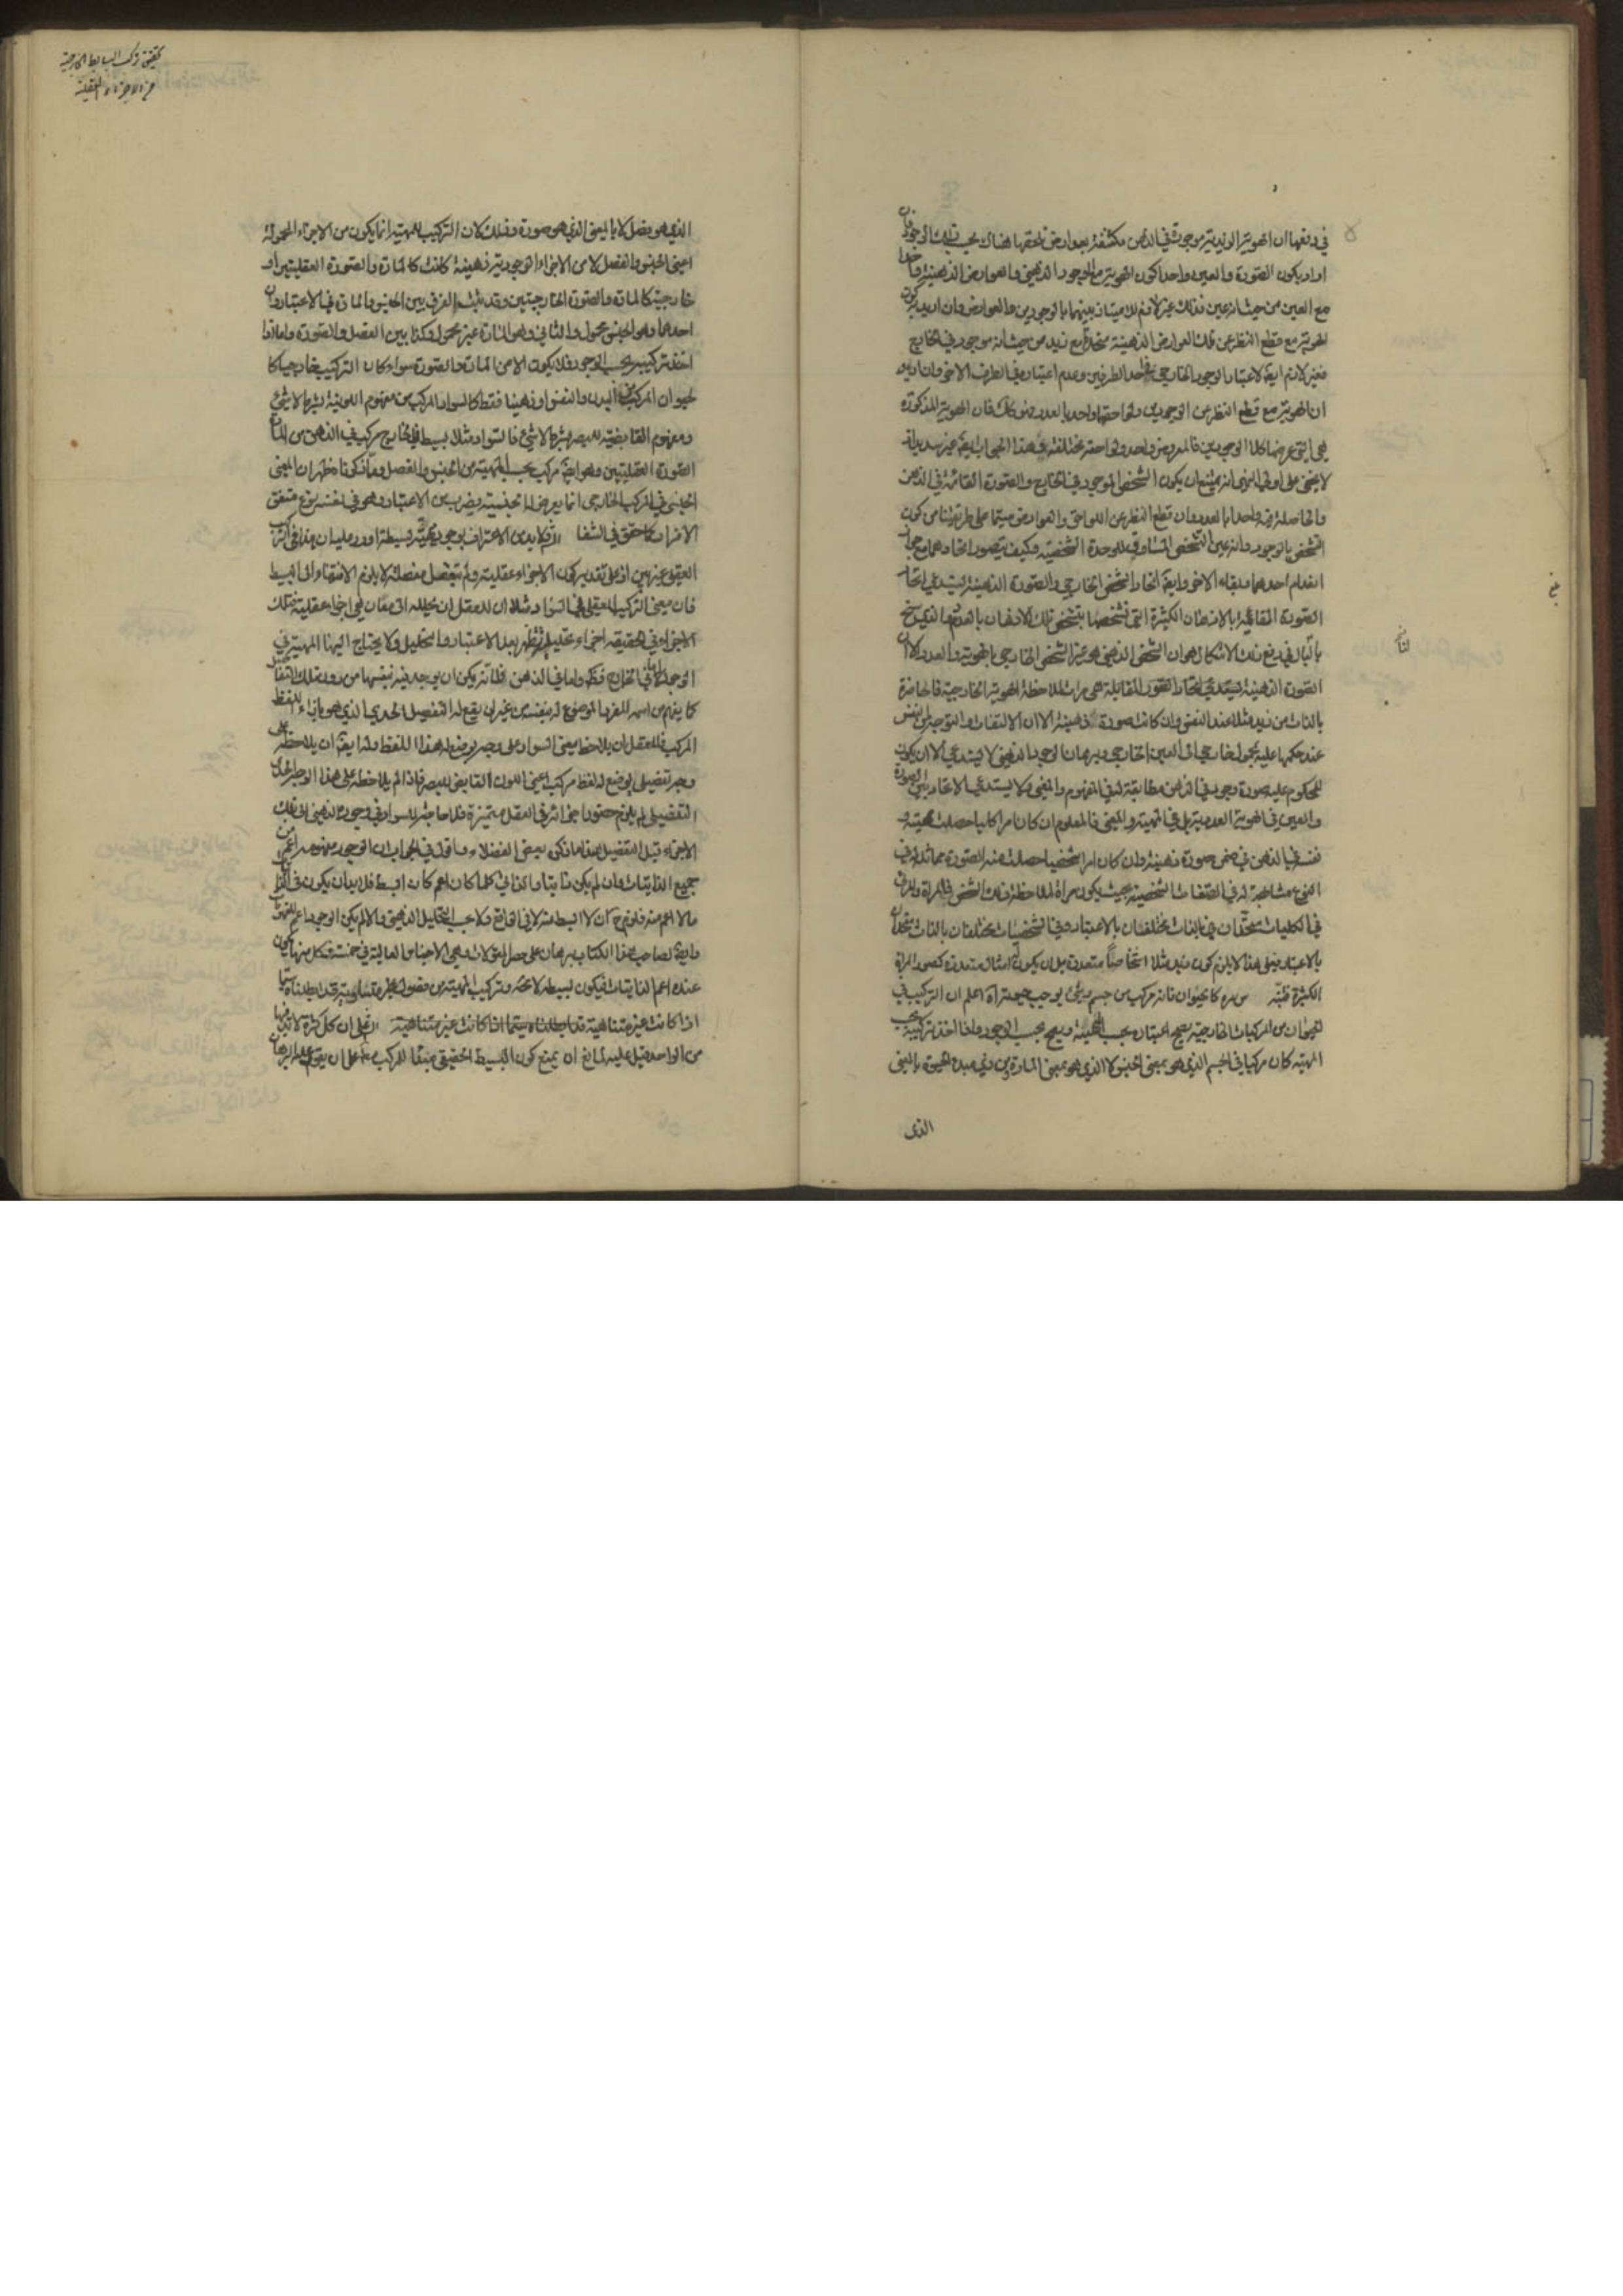 في دفعها ان الهوية الزيدية موجودة في الذهن مكتنفة بعوارض تلحقها هناك بحسب ذلك الوجود فان
اراد بكون الصورة والعين واحدا كون الهوية مع الوجود الذهني والعوارض الذهنية متحدا
مع العين من حيث انه عين فذلك غير لازم للامتياز بينهما بالوجودين والعوارض وان اريد به كون
الهوية مع قطع النظر عن تلك العوارض الذهنية متحدة مع زيد من حيث انه موجود في الخارج
فغير لازم ايضا لاعتبار الوجود الخارجي في احد الطرفين وعدم اعتباره في الطرف الاخر وان اريد به
ان الهوية مع قطع النظر عن الوجودين ولواحقها واحد بالعدد فهو كذلك فان الهوية المذكورة
هي التي عرضها كلا الوجودين فالمعروض واحد ولواحقه مختلفة وهذا الجواب ايضا غير سديد اذ
لا يخفى على اولي النهى انه يمتنع ان يكون الشخص الموجود في الخارج والصورة القائمة في الذهن
والحاصلة فيه واحدا بالعدد وان قطع النظر عن اللواحق والعوارض سيما على ما قررنا من كون
التشخص بالوجود وانه عين التشخص المساوق للوحدة الشخصية وكيف يتصور اتحادهما مع جواز
انعدام احدهما وبقاء الاخر وايضا اتحاد الشخص الخارجي والصورة الذهنية يستدعي اتحاد
الصورة القائمة بالاذهان الكثيرة التي تشخصها بتشخص تلك الاذهان بالعدد والذي سنح
بالبال في دفع ذلك الاشكال هو ان الشخص الذهني هو غير الشخص الخارجي بالهوية والعدد الا ان
الصورة الذهنية يستدعي اتحاد العقول القابلة هي مراة لملاحظة الهوية الخارجية فالحاضرة
بالذات من زيد مثلا عند النفس وان كانت صورة ذهنية الا ان الالتفات والتوجه من النفس
عند حكمها عليه بمحمول خارجي الى العين الخارجي وبرهان الوجود الذهني لا يستدعي الا ان يكون
للمحكوم عليه صورة وجود في الذهن مطابقة له في المفهوم والمعنى ولا يستدعي الاتحاد بين الصورة
والعين في الهوية العددية بل في المهية والمعنى فالمعلوم ان كان امرا كليا حصلت مهيته و
نفسه في الذهن في ضمن صورة ذهنية وان كان امرا شخصيا حصلت منه الصورة مماثلة له في
النوع مشابهة له في الصفات الشخصية بحيث يكون مراة لملاحظة ذلك الشخص
في الكليات متحدان بالذات مختلفان بالاعتبار وفي الشخصيات مختلفان بالذات متحدان
بالاعتبار فعلى هذا لا يلزم كون زيد مثلا اشخاصا متعددة بل ان يكون له امثال متعددة كصور المراة
الكثيرة كالحيوان فانه مركب من جسم وشيء يوجب حيوته اه اعلم ان التركيب في
الحيوان من المركبات الخارجية يصح اعتباره بحسب المهية ويصح بحسب الوجود واذا اخذ تركيبه بحسب
المهية كان مركبا في الجسم الذي هو بمعنى الجنس لا الذي هو بمعنى المادة ومن ذي مبدء الحيوة بالمعنى
الذي
تحقيق تركب البسايط الخارجية
من الاجزاء العقلية
الذي هو فصل لا بالمعنى الذي هو صورة وذلك لان التركيب للمهية انما يكون من الاجزاء المحمولة
اعني الجنس والفصل لا من الاجزاء الوجودية ذهنية كانت كالمادة والصورة العقليتين او
خارجية كالمادة والصورة الخارجيتين وقد ثبت الفرق بين الجنس والمادة في الاعتبار وان
احدهما وهو الجنس محمول والثاني وهو المادة غير محمول وكذا بين الفصل والصورة واما اذا
اخذ تركيبه بحسب الوجود فلا يكون الا من المادة والصورة سواء كان التركيب خارجيا كا
لحيوان المركب من البدن والنفس او ذهنيا فقط كالسواد المركب من مفهوم اللونية بشرط لا شيء
ومفهوم القابضية للبصر بشرط لا شيء فالسواد مثلا بسيط في الخارج مركب في الذهن من المادة
الصورة العقليتين وهو ايضا مركب بحسب المهية من الجنس والفصل ومما ذكرناه ظهر ان المعنى
الجنسي في المركب الخارجي انما يعرض له الجنسية بضرب من الاعتبار وهو في نفسه نوع متفق
الافراد كما حقق في الشفا فلا بد من الاعتراف بوجود مهية بسيطة اورد عليه ان هذا في التركيب
العقلي غير مبين اذ على تقدير كون الاجزاء عقلية ولم يتفصل مفصلة لا يلزم الانتهاء الى البسيط
فان معنى التركيب العقلي في السواد مثلا ان للعقل ان يحلله الى معان هي اجزاء عقلية فتلك
الاجزاء في الحقيقة اجزاء تحليلية تظهر بعد الاعتبار والتحليل ولا يحتاج اليها المهية في
الوجود اما في الخارج فظ واما في الذهن فلانه يمكن ان يوجد فيه بنفسها من دون تلك التفاصيل
كما يفهم من اسمه المفرد الموضوع له بنفسه من غير ان يقع له التفصيل الحدي الذي هو بازاء اللفظ
المركب فللعقل ان يلاحظ معنى السواد على وجه يوضع له هذا اللفظ وله ايضا ان يلاحظه على
وجه تفصيلي يوضع له لفظ مركب اعني اللون القابض للبصر فاذا لم يلاحظه على هذا الوجه الحدي
التفصيلي لم يلزم حضور اجزائه في العقل متميزة فلا حاجة للسواد في وجوده الذهني الى تلك
الاجزاء قبل التفصيل هذا ما ذكره بعض الفضلاء واقول في الجواب ان الوجود مفهومه اعم من
جميع الذاتيات وان لم يكن ذاتيا والذاتي كلما كان اعم كان ابسط فلا بد ان يكون في الذاتيات
ما لا اعم منه فلزم ح ان لا ابسط منه لا في الواقع ولا بحسب التحليل الذهني والا لم يكن الوجود اعم المفهومات
وايضا لصاحب هذا الكتاب برهان على حصر المقولات وهي الاجناس العالية في خمسة فكل منها يكون
عنده اعم الذاتيات فيكون بسيطة لا محة وتركيب المهية من فصول غير متساوية قد ابطلناه سيما
اذا كانت غير متناهية قد ابطلناه سيما اذا كانت غير متناهية على ان كل كثرة لا بد فيها
من الواحد قيل عليه لمانع ان يمنع كون البسيط الحقيقي مبدءا للمركب